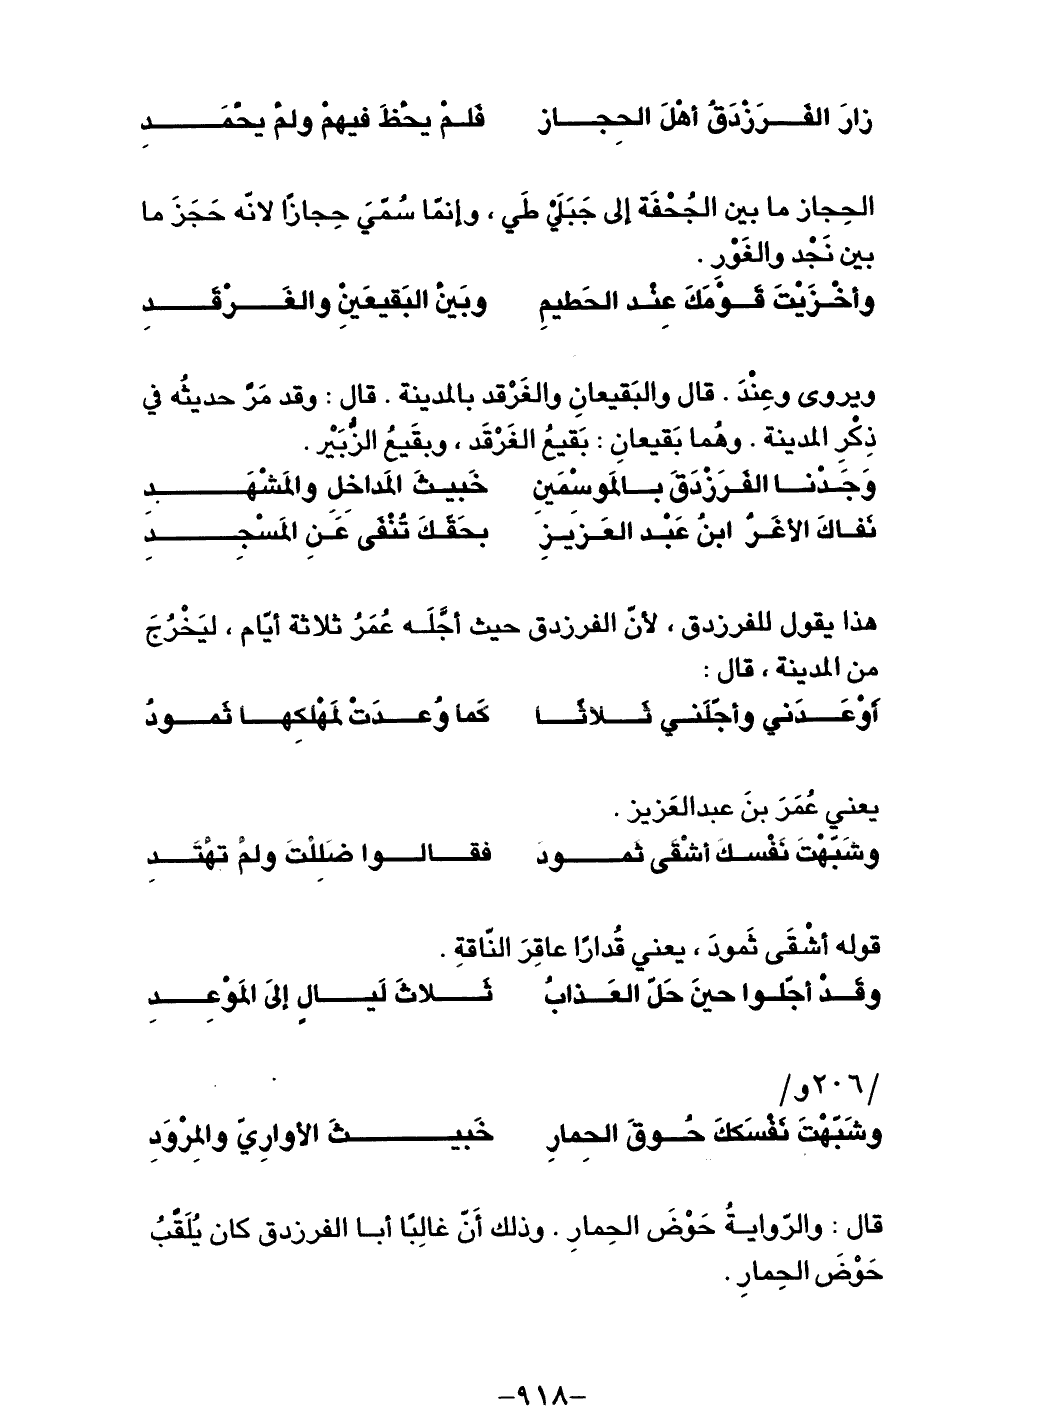 زارَ الفَرَزْدَقُ أهْلَ الحِجازِ فَلمْ يحْظَ فيهمْ ولمْ يحْمَدِ
الحِجاز ما بين الجُحْفَة إلى جَبَلَيْ طَي ، وإنمّا سُمّيَ حِجازًا لانّه حَجَزَ ما
بين نَجْد والغَوْر .
وأخْزَيْتَ قَوْمَكَ عِنْد الحَطيمِ وبَينْ البَقيعَينْ والغَرْقَدِ
ويروى وعِنْدَ . قال والبَقيعانِ والغَرْقد بالمدينة . قال : وقد مَرَّ حديثُه في
ذِكْرِ المدينة . وهُما بَقيعانِ : بَقيعُ الغَرْقَد ، وبقَيعُ الزُّبَيْر .
وَجَدْنا الفَرَزْدَقَ بالمَوسْمَينِ خَبيثَ المداخلِ والمَشْهَدِ
نَفاكَ الأغَرُ ابنُ عَبْد العَزيزِ بحَقّكَ تُنْفَى عَنِ المَسْجِدِ
هذا يقول للفرزدق ، لأنّ الفرزدق حيث أجَّلَه عُمَرُ ثلاثة أيّام ، ليَخْرُجَ
من المدينة ، قال :
أوْعَدَني وأجّلَني ثَلاثًا كَما وُعدَتْ لمَهْلكِها ثَمودُ
يعني عُمَرَ بنَ عبدالعَزيز .
وشَبّهْتَ نَفْسكَ أشْقَى ثَمودَ فقالوا ضَلِلْتَ ولمْ تهْتَدِ
قوله أشْقَى ثَمودَ ، يعني قُدارًا عاقِرَ النّاقةِ .
وقَدْ أجّلوا حينَ حَلّ العَذابُ ثَلاثَ لَيالٍ إلىَ المَوْعِدِ
/٢٠٦و/
وشَبّهْتَ نَفْسَكَ حُوقَ الحِمارِ خَبيثَ الأوارِيّ والمِرْوَدِ
قال : والرّوايةُ حَوْضَ الحِمارِ . وذلك أنّ غالِبًا أبا الفرزدق كان يُلَقّبُ
حَوْضَ الحِمارِ .
–٩١٨–